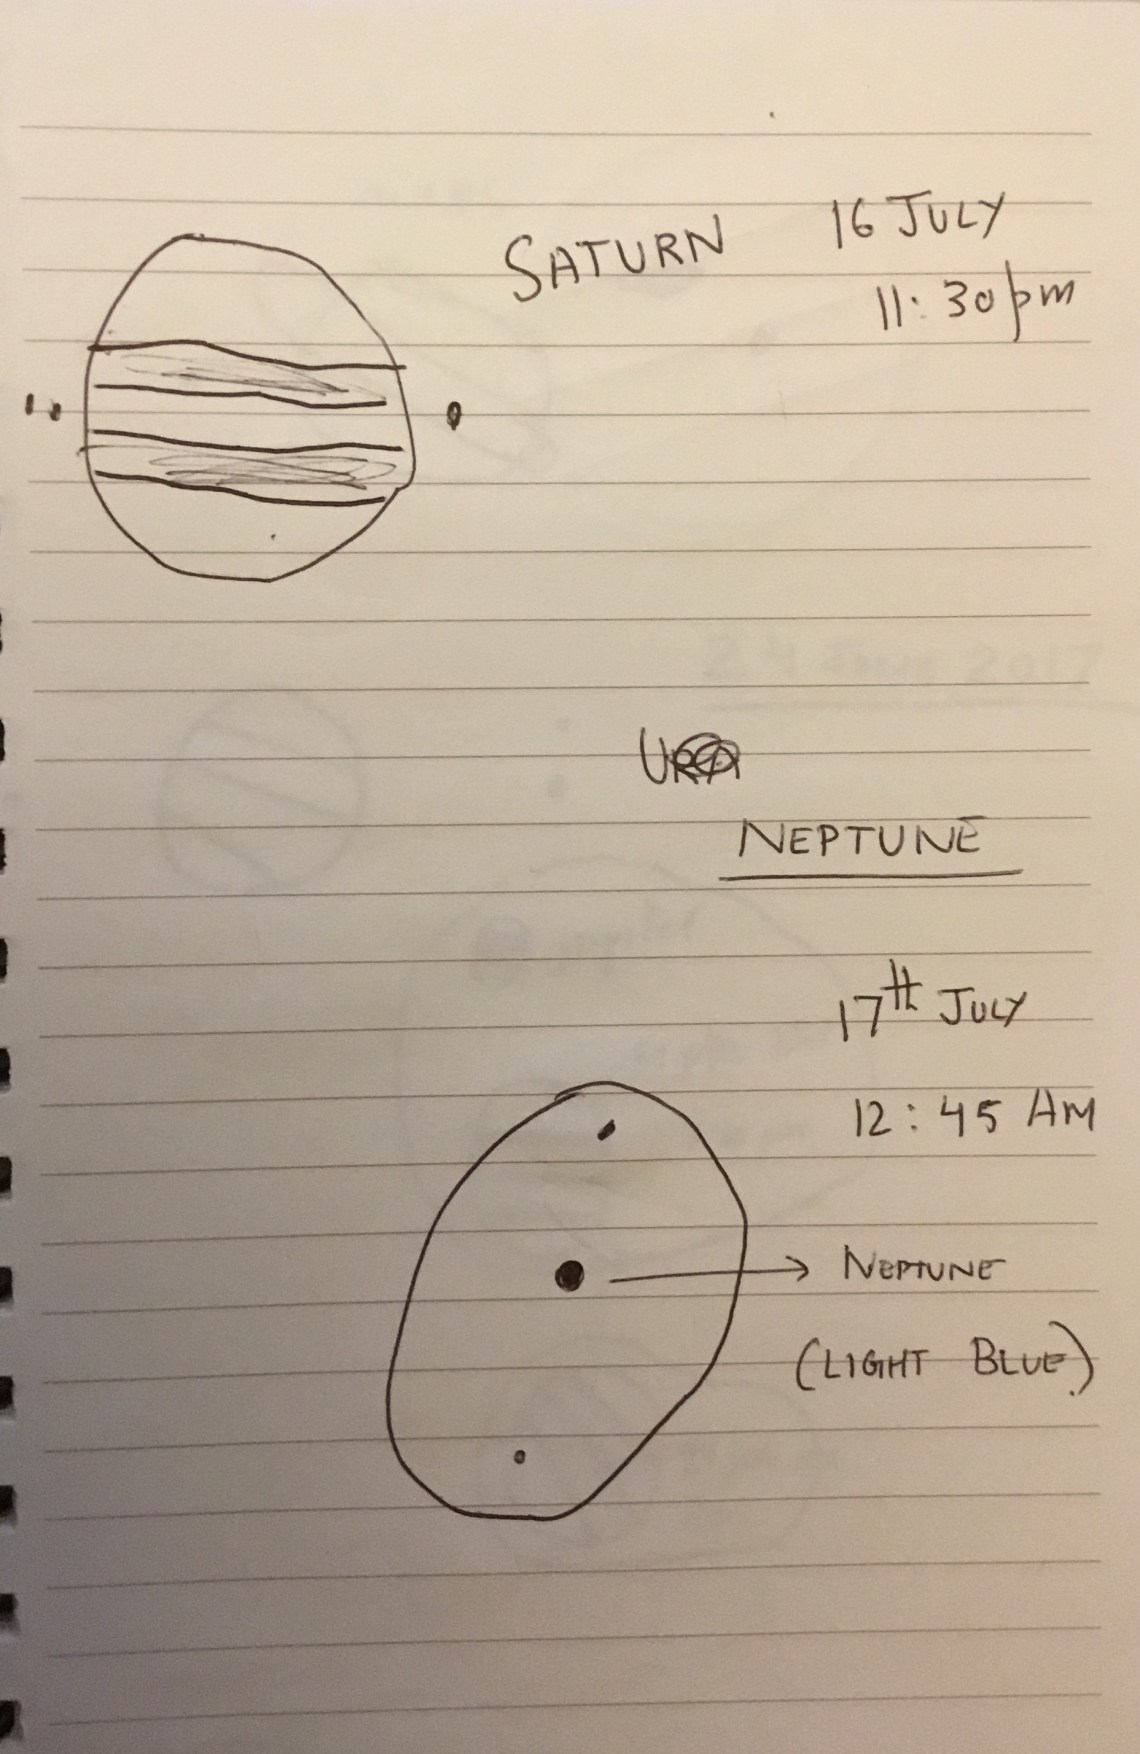 SATURN 16 JULY
11:30pm
NEPTUNE
17th JULY
12:45 AM
NEPTUNE
(LIGHT BLUE)